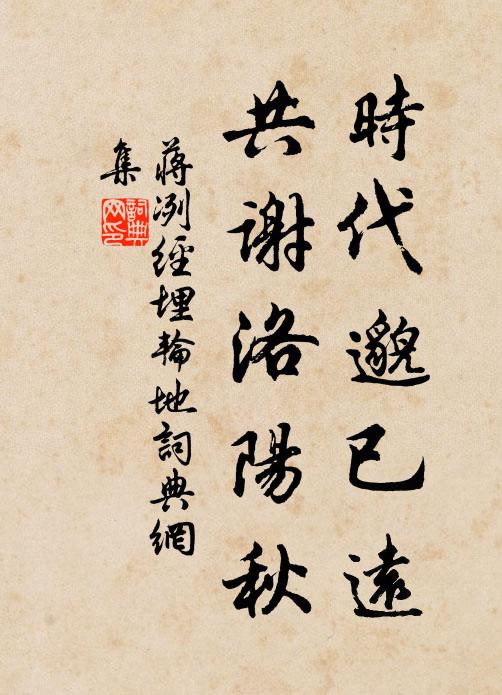 時代邈已遠
共謝洛陽秋
蔣洌經埋輪地詞典網
集
詞典
网印